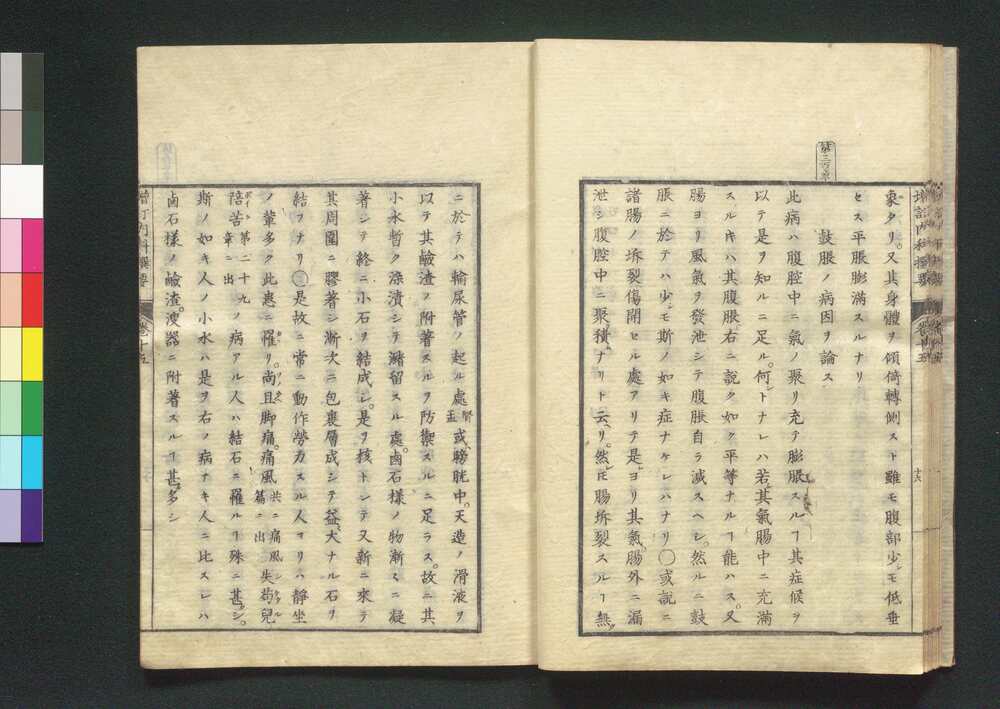 衆タリ。又其身體ヲ傾倚轉側スト雖モ腹部少シモ低垂
セス平脹膨滿スルナリ
鼓脹ノ病因ヲ論ス
此病ハ腹腔中ニ氣ノ聚リ充テ膨脹スルヿ其症候ヲ
以テ是ヲ知ルニ足ル。何トナレハ若其氣腸中ニ充滿
スルキハ其腹脹右ニ說ク如ク平等ナルヿ能ハス。又
腸ヨリ風氣ヲ發泄シテ腹脹自ラ減スヘシ。然ルニ鼓
脹ニ於テハ少シモ斯ノ如キ症ナケレハナリ〇或說ニ
諸腸ノ坼裂傷開セル處アリテ是ヨリ其氣腸外ニ漏
泄シ腹腔中ニ聚積ナリト云リ。然𪜈腸坼裂スルヿ無
增訂內科撰要
卷十五
ニ於テハ輸尿管ノ起ル處腎盂或膀胱中。天造ノ滑液ヲ
以テ其鹼渣ノ附著スルヲ防禦スルニ足ラス。故ニ其
小水暫ク滲漬シテ瀦留スル處。鹵石樣ノ物漸々ニ凝
著シテ終ニ小石ヲ結成シ。是ヲ核トシテ又新ニ來テ
其周圍ニ膠著シ漸次ニ包裹層成シテ益大ナル石リ
結フナリ〇是故ニ常ニ動作勞力スル人ヨリハ靜坐
ノ輩多ク此患ニ罹リ。尚且脚痛。痛風共ニ痛風篇ニ出失苟兒
陪苦第二十九章ニ出ノ病アル人ハ結石ニ罹ルヿ殊ニ甚シ。
斯ノ如キ人ノ小水ハ是ヲ右ノ病ナキ人ニ比スレハ
鹵石樣ノ鹼渣。溲器ニ附著スルヿ甚多シ